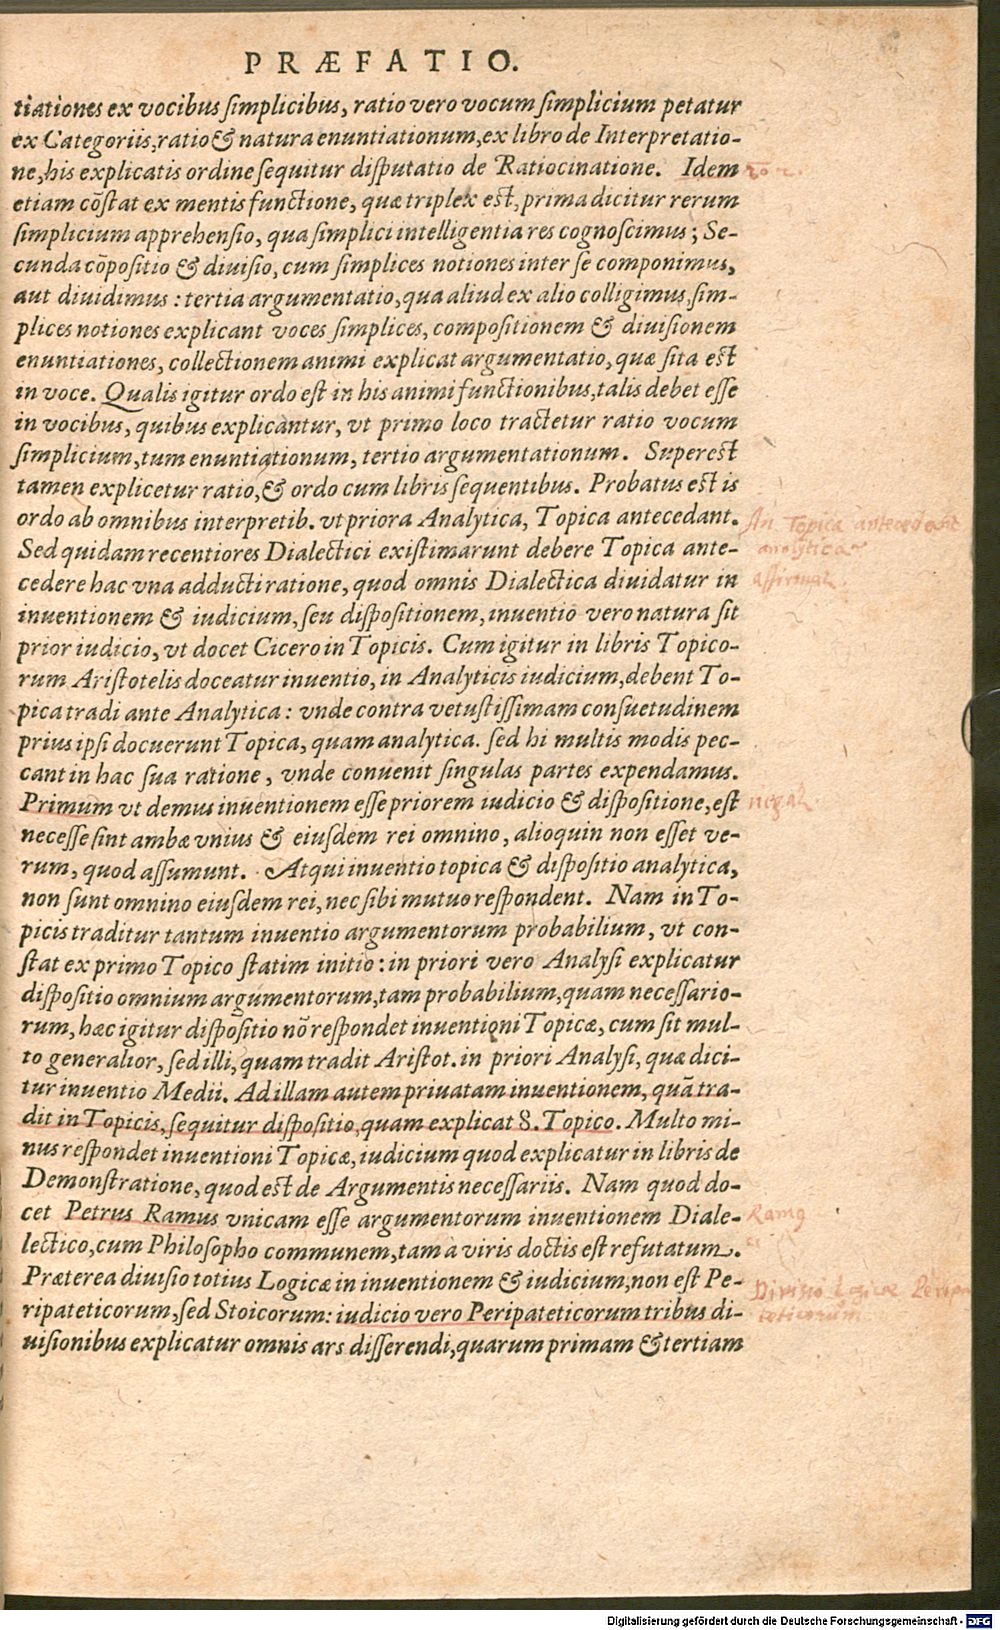 PRÆFATIO.
tiationes ex vocibus simplicibus, ratio vero vocum simplicium petatur
ex Categoriis, ratio & natura enuntiationum, ex libro de Interpretatio-
ne, his explicatis ordine sequitur disputatio de Ratiocinatione. Idem
etiam cōstat ex mentis functione, quæ triplex est, prima dicitur rerum
simplicium apprehensio, qua simplici intelligentia res cognoscimus; Se-
cunda cōpositio & diuisio, cum simplices notiones inter se componimus,
aut diuidimus: tertia argumentatio, qua aliud ex alio colligimus, sim-
plices notiones explicant voces simplices, compositionem & diuisionem
enuntiationes, collectionem animi explicat argumentatio, quæ sita est
in voce. Qualis igitur ordo est in his animi functionibus, talis debet esse
in vocibus, quibus explicantur, vt primo loco tractetur ratio vocum
simplicium, tum enuntiationum, tertio argumentationum. Superest
tamen explicetur ratio, & ordo cum libris sequentibus. Probatus est is
ordo ab omnibus interpretib. vt priora Analytica, Topica antecedant.
An Topica antecedant
analytica?
Sed quidam recentiores Dialectici existimarunt debere Topica ante-
cedere hac vna adducti ratione, quod omnis Dialectica diuidatur in
affirmat
inuentionem & iudicium, seu dispositionem, inuentio vero natura sit
prior iudicio, vt docet Cicero in Topicis. Cum igitur in libris Topico-
rum Aristotelis doceatur inuentio, in Analyticis iudicium, debent To-
pica tradi ante Analytica: vnde contra vetustissimam consuetudinem
prius ipsi docuerunt Topica, quam analytica. sed hi multis modis pec-
cant in hac sua ratione, vnde conuenit singulas partes expendamus.
Primum vt demus inuentionem esse priorem iudicio & dispositione, est
negat
necesse sint ambæ vnius & eiusdem rei omnino, alioquin non esset ve-
rum, quod assumunt. Atqui inuentio topica & dispositio analytica,
non sunt omnino eiusdem rei, nec sibi mutuo respondent. Nam in To-
picis traditur tantum inuentio argumentorum probabilium, vt con-
stat ex primo Topico statim initio: in priori vero Analysi explicatur
dispositio omnium argumentorum, tam probabilium, quam necessario-
rum, hæc igitur dispositio nō respondet inuentioni Topicæ, cum sit mul-
to generalior, sed illi, quam tradit Aristot. in priori Analysi, quæ dici-
tur inuentio Medii. Ad illam autem priuatam inuentionem, quā tra-
dit in Topicis, sequitur dispositio, quam explicat 8. Topico. Multo mi-
nus respondet inuentioni Topicæ, iudicium quod explicatur in libris de
Demonstratione, quod est de Argumentis necessariis. Nam quod do-
cet Petrus Ramus vnicam esse argumentorum inuentionem Diale-
Ramus
lectico, cum Philosopho communem, tam à viris doctis est refutatum.
Præterea diuisio totius Logicæ in inuentionem & iudicium, non est Pe-
Divisio Logicae Peripa
teticorum
ripateticorum, sed Stoicorum: iudicio vero Peripateticorum tribus di-
uisionibus explicatur omnis ars disserendi, quarum primam & tertiam
Digitalisierung gefördert durch die Deutsche Forschungsgemeinschaft - DFG